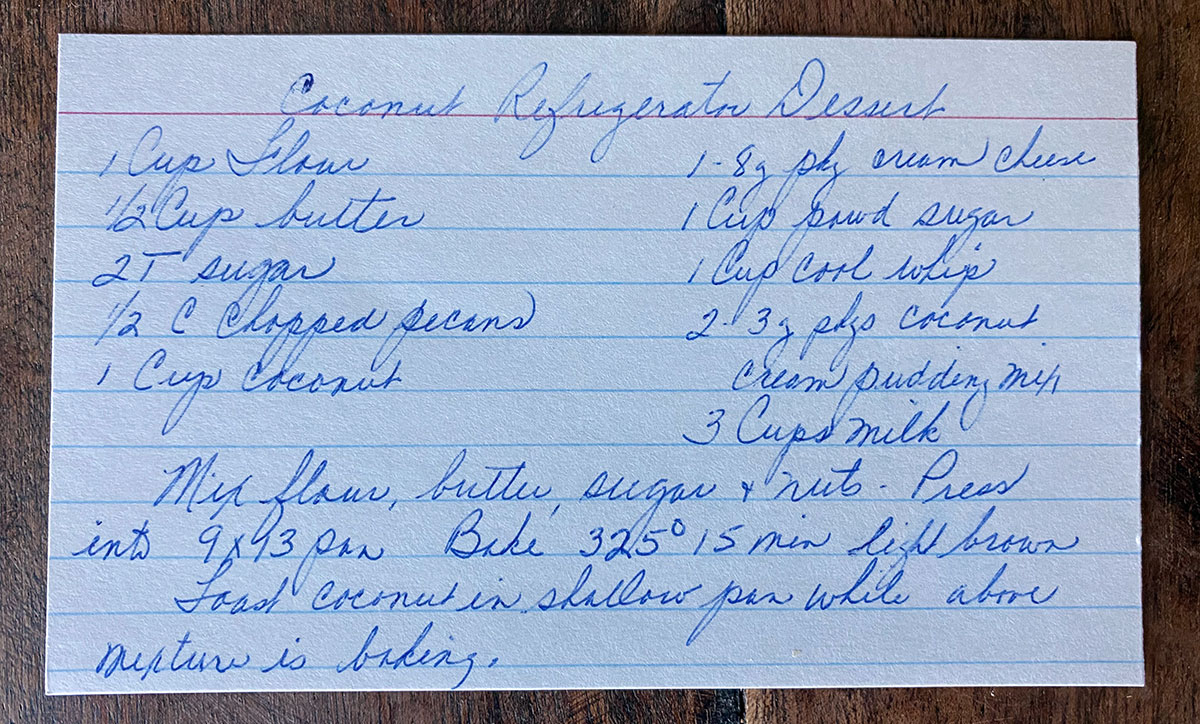 Coconut Refrigerator Dessert
1 Cup Flour
1/2 Cup butter
2T sugar
1/2 C Chopped pecans
1 Cup coconut
1-8z pkg cream cheese
1 Cup powd sugar
1 Cup cool whip
2-3z pkgs coconut
cream pudding mix
3 Cups milk
Mix flour, butter, sugar + nuts - Press
into 9x13 pan Bake 325° 15 min light brown
Toast coconut in shallow pan while above
mixture is baking.